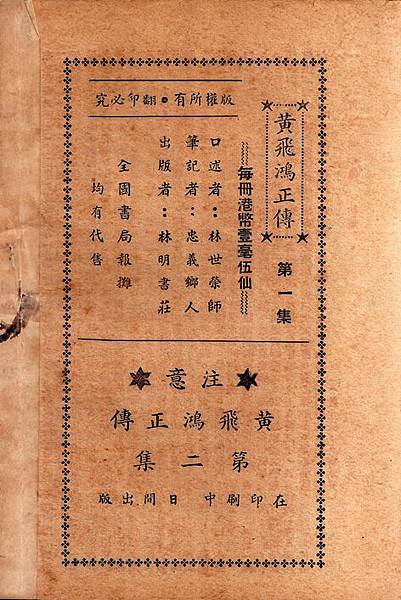 版權所有●翻印必究
黃飛鴻正傳 第一集
每冊港幣壹毫伍仙
口述者：林世榮師
筆記者：忠義鄉人
出版者：林明書莊
全國書局報攤
均有代售
注意
黃飛鴻正傳
第二集
在印刷中 日間出版